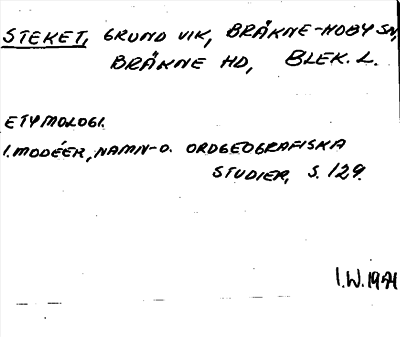 STEKET, GRUND VIK, BRÄKNE-HOBY SN,
BRÄKNE HD, BLEK. L.
ETYMOLOGI.
I. MODÉER, NAMN-O. ORDGEOGRAFISKA
STUDIER, S. 129.